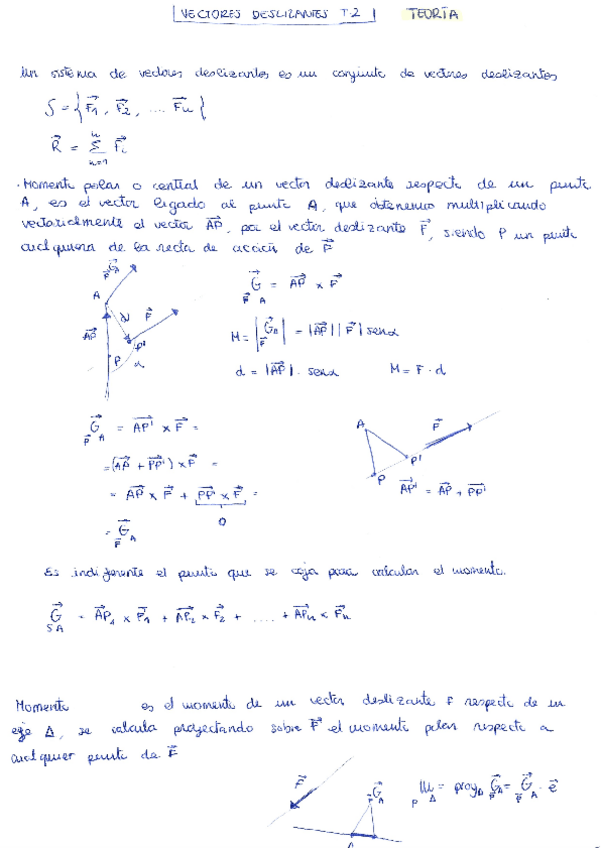 VECTORES DESLIZANTES T.2 | TEORÍA
Un sistema de vectores deslizantes es un conjunto de vectores deslizantes
S = { F⃗1, F⃗2, .... F⃗n {
R⃗ = Σ F⃗i
n
n=1
· Momento polar o central de un vector deslizante respecto de un punto
A, es el vector ligado al punto A, que obtenemos multiplicando
vectorialmente el vector AP⃗, por el vector deslizante F⃗, siendo P un punto
cualquiera de la recta de acción de F⃗
G⃗ A F⃗ = AP⃗ × F⃗
M = |G⃗ F⃗| = |AP⃗| |F⃗| senα
d = |AP⃗| · senα M = F · d
A
d
F⃗
AP⃗
P
P'
α
G⃗ A F⃗ = AP'⃗ × F⃗ =
= (AP⃗ + PP'⃗) × F⃗ =
= AP⃗ × F⃗ + PP'⃗ × F⃗ =
0
= G⃗ A F⃗
A
F⃗
P'
P
AP'⃗ = AP⃗ + PP'⃗
Es indiferente el punto que se coja para calcular el momento.
G⃗ SA = AP⃗1 × F⃗1 + AP⃗2 × F⃗2 + .... + AP⃗n × F⃗n
Momento es el momento de un vector deslizante F respecto de un
eje Δ, se calcula proyectando sobre F⃗ el momento polar respecto a
cualquier punto de F⃗
F⃗
G⃗ A
M Δ = proy Δ G⃗ A = G⃗ A · e⃗